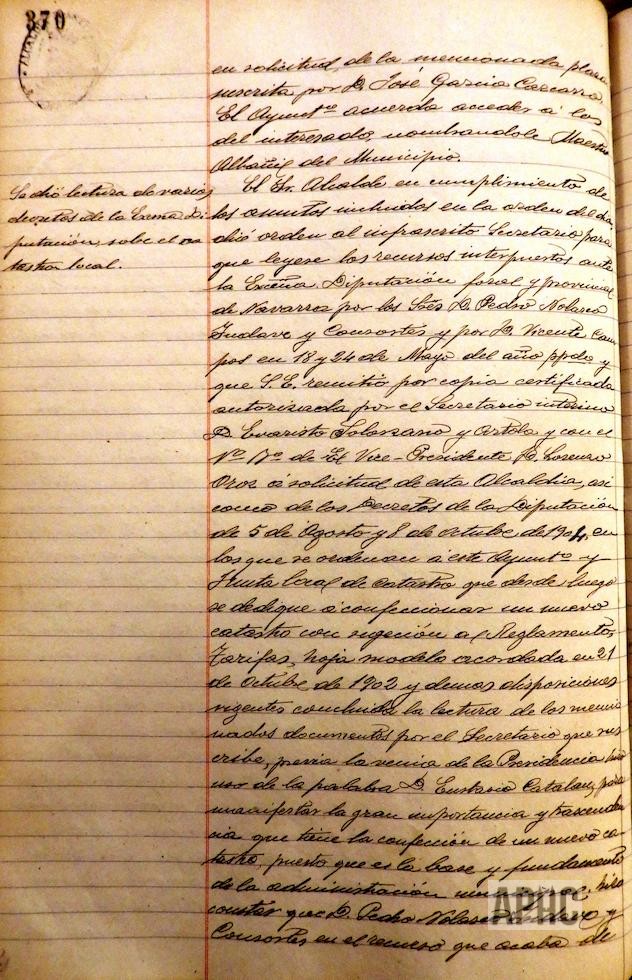 370
en solicitud de la mencionada plaza
suscrita por D. José Garcia Carcarra
El Ayuntº acuerda acceder á los
del interesado, nombrandole Maestro
Albañil del Municipio.
Se dió lectura de varios
decretos de la Excma Di
putación, sobre el ca
tastro local.
El Sr. Alcalde en cumplimiento de
los asuntos incluidos en la orden del dia
dió orden al infrascrito Secretario para
que leyese los recursos interpuestos ante
la Excma. Diputación foral y provincial
de Navarra por los Sres D. Pedro Nolasco
y Consortes y por D. Vicente Cam
pos en 18 y 24 de Mayo del año ppdo y
que S.E. remitió por copia certificada
autorizada por el Secretario interino
D. Evaristo Solorzano y Artola y con el
Vº Bº de El Vice-Presidente D. Lorenzo
Oroz á solicitud de esta Alcaldia, asi
como de los Decretos de la Diputación
de 5 de Agosto y 8 de Octubre de 1904, en
los que se ordenan á este Ayuntº y
Junta local de catastro que desde luego
se dedique á confeccionar un nuevo
catastro con sugeción al Reglamento,
Tarifas, hoja modelo acordada en 21
de Octubre de 1902 y demas disposiciones
vigentes concluida la lectura de los mencio
nados documentos por el Secretario que sus
cribe, previa la venia de la Presidencia hizo
uso de la palabra D. Eustasio Catalan, para
manifestar la gran importancia y trascenden
cia que tiene la confección de un nuevo ca
tastro, puesto que es la base y fundamento
de la administración hizo
constar que D. Pedro y
Consortes en el recurso que acaba de
APHC